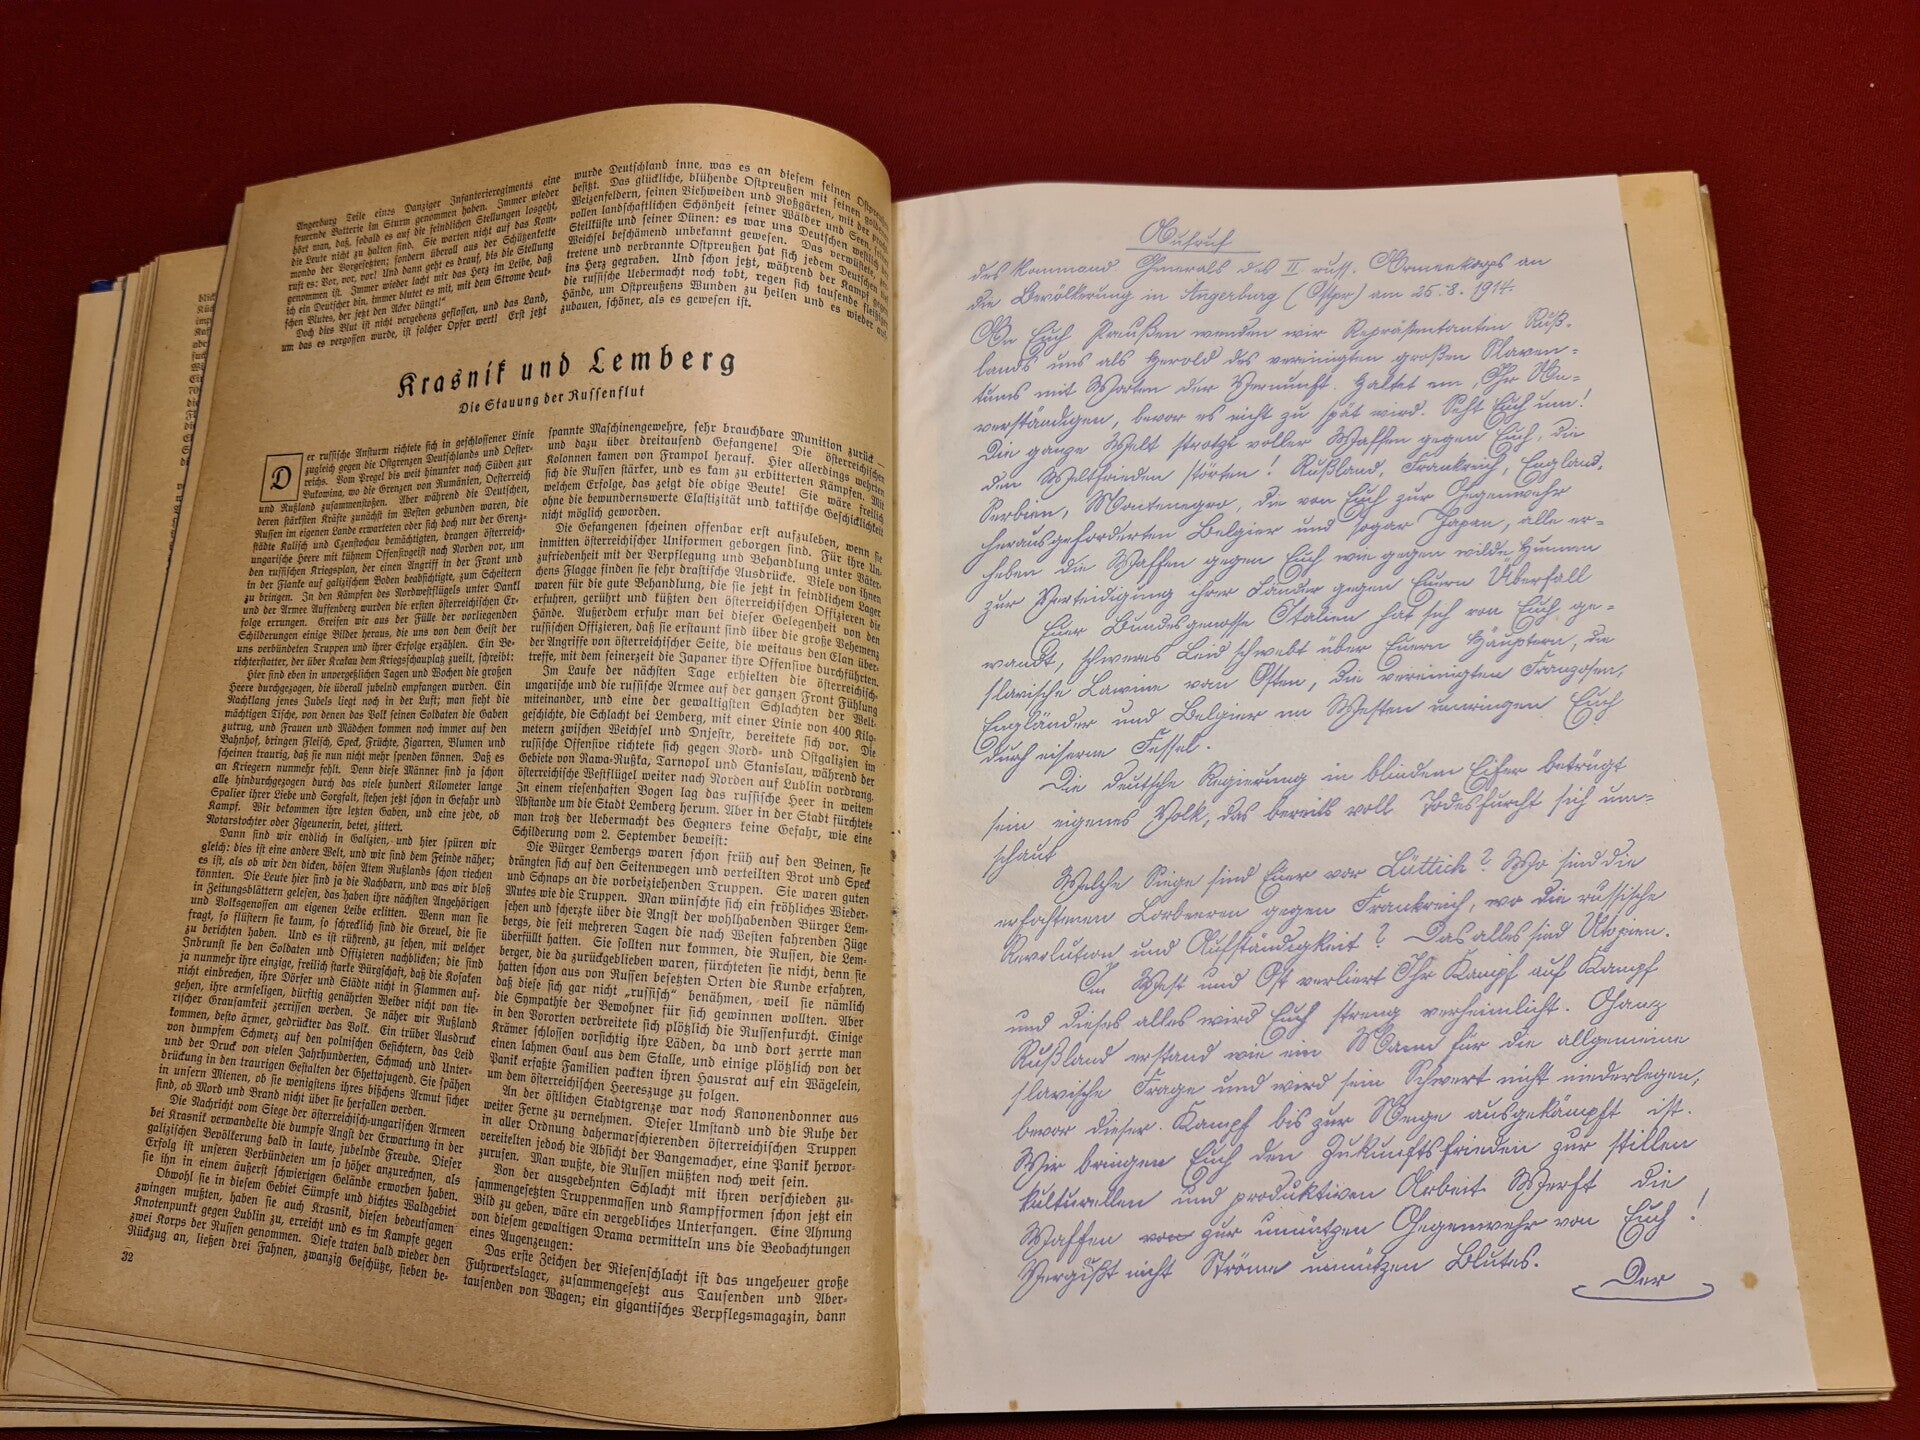 Angerburg Teile eines Danziger Infanterieregiments eine
feuernde Batterie im Sturm genommen haben. Immer wieder
hört man, daß, sobald es auf die feindlichen Stellungen losgeht,
die Leute nicht zu halten sind. Sie warten nicht auf das Kom-
mando der Vorgesetzten; sondern überall aus der Schützenkette
ruft es: Vor, vor, vor! Und dann geht es drauf, bis die Stellung
genommen ist. Immer wieder lacht mir das Herz im Leibe, daß
ich ein Deutscher bin, immer blutet es mit, mit dem Strome deut-
schen Blutes, der jetzt den Acker düngt!“
Doch dies Blut ist nicht vergebens geflossen, und das Land,
um das es vergossen wurde, ist solcher Opfer wert! Erst jetzt
wurde Deutschland inne, was es an diesem seinen Ostpreußen
besitzt. Das glückliche, blühende Ostpreußen mit seinen goldenen
Weizenfeldern, seinen Viehweiden und Roßgärten, mit der
vollen landschaftlichen Schönheit seiner Wälder und Seen, seiner
Steilküste und seiner Dünen: es war uns Deutschen westlich der
Weichsel beschämend unbekannt gewesen. Das verwüstete, zer-
tretene und verbrannte Ostpreußen hat sich jedem Deutschen
ins Herz gegraben. Und schon jetzt, während der Kampf gegen
die russische Uebermacht noch tobt, regen sich tausende fleißiger
Hände, um Ostpreußens Wunden zu heilen und es wieder auf-
zubauen, schöner, als es gewesen ist.
Krasnik und Lemberg
Die Stauung der Russenflut
Der russische Ansturm richtete sich in geschlossener Linie
zugleich gegen die Ostgrenzen Deutschlands und Oester-
reichs. Vom Pregel bis weit hinunter nach Süden zur
Bukowina, wo die Grenzen von Rumänien, Oesterreich
und Rußland zusammenstoßen. Aber während die Deutschen,
deren stärksten Kräfte zunächst im Westen gebunden waren, die
Russen im eigenen Lande erwarteten oder sich doch nur der Grenz-
städte Kalisch und Czenstochau bemächtigten, drangen österreich-
ungarische Heere mit kühnem Offensivgeist nach Norden vor, um
den russischen Kriegsplan, der einen Angriff in der Front und
in der Flanke auf galizischem Boden beabsichtigte, zum Scheitern
zu bringen. In den Kämpfen des Nordwestflügels unter Dankl
und der Armee Auffenberg wurden die ersten österreichischen Er-
folge errungen. Greifen wir aus der Fülle der vorliegenden
Schilderungen einige Bilder heraus, die uns von dem Geist der
uns verbündeten Truppen und ihrer Erfolge erzählen. Ein Be-
richterstatter, der über Krakau dem Kriegsschauplatz zueilt, schreibt:
Hier sind eben in unvergeßlichen Tagen und Wochen die großen
Heere durchgezogen, die überall jubelnd empfangen wurden. Ein
Nachklang jenes Jubels liegt noch in der Luft; man sieht die
mächtigen Tische, von denen das Volk seinen Soldaten die Gaben
zutrug, und Frauen und Mädchen kommen noch immer auf den
Bahnhof, bringen Fleisch, Speck, Früchte, Zigarren, Blumen und
scheinen traurig, daß sie nun nicht mehr spenden können. Daß es
an Kriegern nunmehr fehlt. Denn diese Männer sind ja schon
alle hindurchgezogen durch das viele hundert Kilometer lange
Spalier ihrer Liebe und Sorgfalt, stehen jetzt schon in Gefahr und
Kampf. Wir bekommen ihre letzten Gaben, und eine jede, ob
Notarstochter oder Zigeunerin, betet, zittert.
Dann sind wir endlich in Galizien, und hier spüren wir
gleich: dies ist eine andere Welt, und wir sind dem Feinde näher;
es ist, als ob wir den dicken, bösen Atem Rußlands schon riechen
könnten. Die Leute hier sind ja die Nachbarn, und was wir bloß
in Zeitungsblättern gelesen, das haben ihre nächsten Angehörigen
und Volksgenossen am eigenen Leibe erlitten. Wenn man sie
fragt, so flüstern sie kaum, so schrecklich sind die Greuel, die sie
zu berichten haben. Und es ist rührend, zu sehen, mit welcher
Inbrunst sie den Soldaten und Offizieren nachblicken; die sind
ja nunmehr ihre einzige, freilich starke Bürgschaft, daß die Kosaken
nicht einbrechen, ihre Dörfer und Städte nicht in Flammen auf-
gehen, ihre armseligen, dürftig genährten Weiber nicht von tie-
rischer Grausamkeit zerrissen werden. Je näher wir Rußland
kommen, desto ärmer, gedrückter das Volk. Ein trüber Ausdruck
von dumpfem Schmerz auf den polnischen Gesichtern, das Leid
und der Druck von vielen Jahrhunderten, Schmach und Unter-
drückung in den traurigen Gestalten der Ghettojugend. Sie spähen
in unsern Mienen, ob sie wenigstens ihres bißchens Armut sicher
sind, ob Mord und Brand nicht über sie herfallen werden.
Die Nachricht vom Siege der österreichisch-ungarischen Armeen
bei Krasnik verwandelte die dumpfe Angst der Erwartung in der
galizischen Bevölkerung bald in laute, jubelnde Freude. Dieser
Erfolg ist unseren Verbündeten um so höher anzurechnen, als
sie ihn in einem äußerst schwierigen Gelände erworben haben.
Obwohl sie in diesem Gebiet Sümpfe und dichtes Waldgebiet
zwingen mußten, haben sie auch Krasnik, diesen bedeutsamen
Knotenpunkt gegen Lublin zu, erreicht und es im Kampfe gegen
zwei Korps der Russen genommen. Diese traten bald wieder den
Rückzug an, ließen drei Fahnen, zwanzig Geschütze, sieben be-
32
spannte Maschinengewehre, sehr brauchbare Munition zurück —
und dazu über dreitausend Gefangene! Die österreichischen
Kolonnen kamen von Frampol herauf. Hier allerdings wehrten
sich die Russen stärker, und es kam zu erbitterten Kämpfen. Mit
welchem Erfolge, das zeigt die obige Beute! Sie wäre freilich
ohne die bewundernswerte Elastizität und taktische Geschicklichkeit
nicht möglich geworden.
Die Gefangenen scheinen offenbar erst aufzuleben, wenn sie
inmitten österreichischer Uniformen geborgen sind. Für ihre Un-
zufriedenheit mit der Verpflegung und Behandlung unter Väter-
chens Flagge finden sie sehr drastische Ausdrücke. Viele von ihnen
waren für die gute Behandlung, die sie jetzt in feindlichem Lager
erfuhren, gerührt und küßten den österreichischen Offizieren die
Hände. Außerdem erfuhr man bei dieser Gelegenheit von den
russischen Offizieren, daß sie erstaunt sind über die große Vehemenz
der Angriffe von österreichischer Seite, die weitaus den Elan über-
treffe, mit dem seinerzeit die Japaner ihre Offensive durchführten.
Im Laufe der nächsten Tage erhielten die österreichisch-
ungarische und die russische Armee auf der ganzen Front Fühlung
miteinander, und eine der gewaltigsten Schlachten der Welt-
geschichte, die Schlacht bei Lemberg, mit einer Linie von 400 Kilo-
metern zwischen Weichsel und Dnjestr, bereitete sich vor. Die
russische Offensive richtete sich gegen Nord- und Ostgalizien im
Gebiete von Rawa-Rußka, Tarnopol und Stanislau, während der
österreichische Westflügel weiter nach Norden auf Lublin vordrang.
In einem riesenhaften Bogen lag das russische Heer in weitem
Abstande um die Stadt Lemberg herum. Aber in der Stadt fürchtete
man trotz der Uebermacht des Gegners keine Gefahr, wie eine
Schilderung vom 2. September beweist:
Die Bürger Lembergs waren schon früh auf den Beinen, sie
drängten sich auf den Seitenwegen und verteilten Brot und Speck
und Schnaps an die vorbeiziehenden Truppen. Sie waren guten
Mutes wie die Truppen. Man wünschte sich ein fröhliches Wieder-
sehen und scherzte über die Angst der wohlhabenden Bürger Lem-
bergs, die seit mehreren Tagen die nach Westen fahrenden Züge
überfüllt hatten. Sie sollten nur kommen, die Russen, die Lem-
berger, die da zurückgeblieben waren, fürchteten sie nicht, denn sie
hatten schon aus von Russen besetzten Orten die Kunde erfahren,
daß diese sich gar nicht „russisch“ benähmen, weil sie nämlich
die Sympathie der Bewohner für sich gewinnen wollten. Aber
in den Vororten verbreitete sich plötzlich die Russenfurcht. Einige
Krämer schlossen vorsichtig ihre Läden, da und dort zerrte man
einen lahmen Gaul aus dem Stalle, und einige plötzlich von der
Panik erfaßte Familien packten ihren Hausrat auf ein Wägelein,
um dem österreichischen Heereszuge zu folgen.
An der östlichen Stadtgrenze war noch Kanonendonner aus
weiter Ferne zu vernehmen. Dieser Umstand und die Ruhe der
in aller Ordnung dahermarschierenden österreichischen Truppen
vereitelten jedoch die Absicht der Bangemacher, eine Panik hervor-
zurufen. Man wußte, die Russen müßten noch weit sein.
Von der ausgedehnten Schlacht mit ihren verschieden zu-
sammengesetzten Truppenmassen und Kampfformen schon jetzt ein
Bild zu geben, wäre ein vergebliches Unterfangen. Eine Ahnung
von diesem gewaltigen Drama vermitteln uns die Beobachtungen
eines Augenzeugen:
Das erste Zeichen der Riesenschlacht ist das ungeheuer große
Fuhrwerkslager, zusammengesetzt aus Tausenden und Aber-
tausenden von Wagen; ein gigantisches Verpflegsmagazin, dann
Aufruf
des Kommand Generals des II russ. Armeekorps an
die Bevölkerung in Angerburg (Ostpr) am 25.8.1914.
An Euch Preußen wenden wir Repräsentanten Ruß-
lands uns als Herold des vereinigten großen Slaven-
tums mit Worten der Vernunft. Haltet ein, Ihr Un-
verständigen, bevor es nicht zu spät wird. Seht Euch um!
Die ganze Welt strotzt voller Waffen gegen Euch, die
den Weltfrieden störten! Rußland, Frankreich, England,
Serbien, Montenegro, die von Euch zur Gegenwehr
herausgeforderten Belgier und sogar Japan, alle er-
heben die Waffen gegen Euch wie gegen wilde Hunnen
zur Verteidigung ihrer Länder gegen Euern Überfall
Euer Bundesgenosse Italien hat sich von Euch ge-
wandt, schweres Leid schwebt über Euern Häuptern, die
slavische Lawine vom Osten, die vereinigten Franzosen,
Engländer und Belgier im Westen umringen Euch
durch eiserne Fessel.
Die deutsche Regierung in blindem Eifer betrügt
sein eigenes Volk, das bereits voll Todesfurcht sich um-
schaut
Welche Siege sind Euer vor Lüttich? Wo sind die
erfochtenen Lorbeeren gegen Frankreich, wo die russische
Revolution und Aufständigkeit? Das alles sind Utopien.
In West und Ost verliert Ihr Kampf auf Kampf
und dieses alles wird Euch streng verheimlicht. Ganz
Rußland erstand wie ein Mann für die allgemeine
slavische Frage und wird sein Schwert nicht niederlegen,
bevor dieser Kampf bis zur Neige ausgekämpft ist.
Wir bringen Euch den Zukunftsfrieden zur stillen
kulturellen und produktiven Arbeit. Werft die
Waffen von zur unnützen Gegenwehr von Euch!
Vergießt nicht Ströme unnützen Blutes.
Der